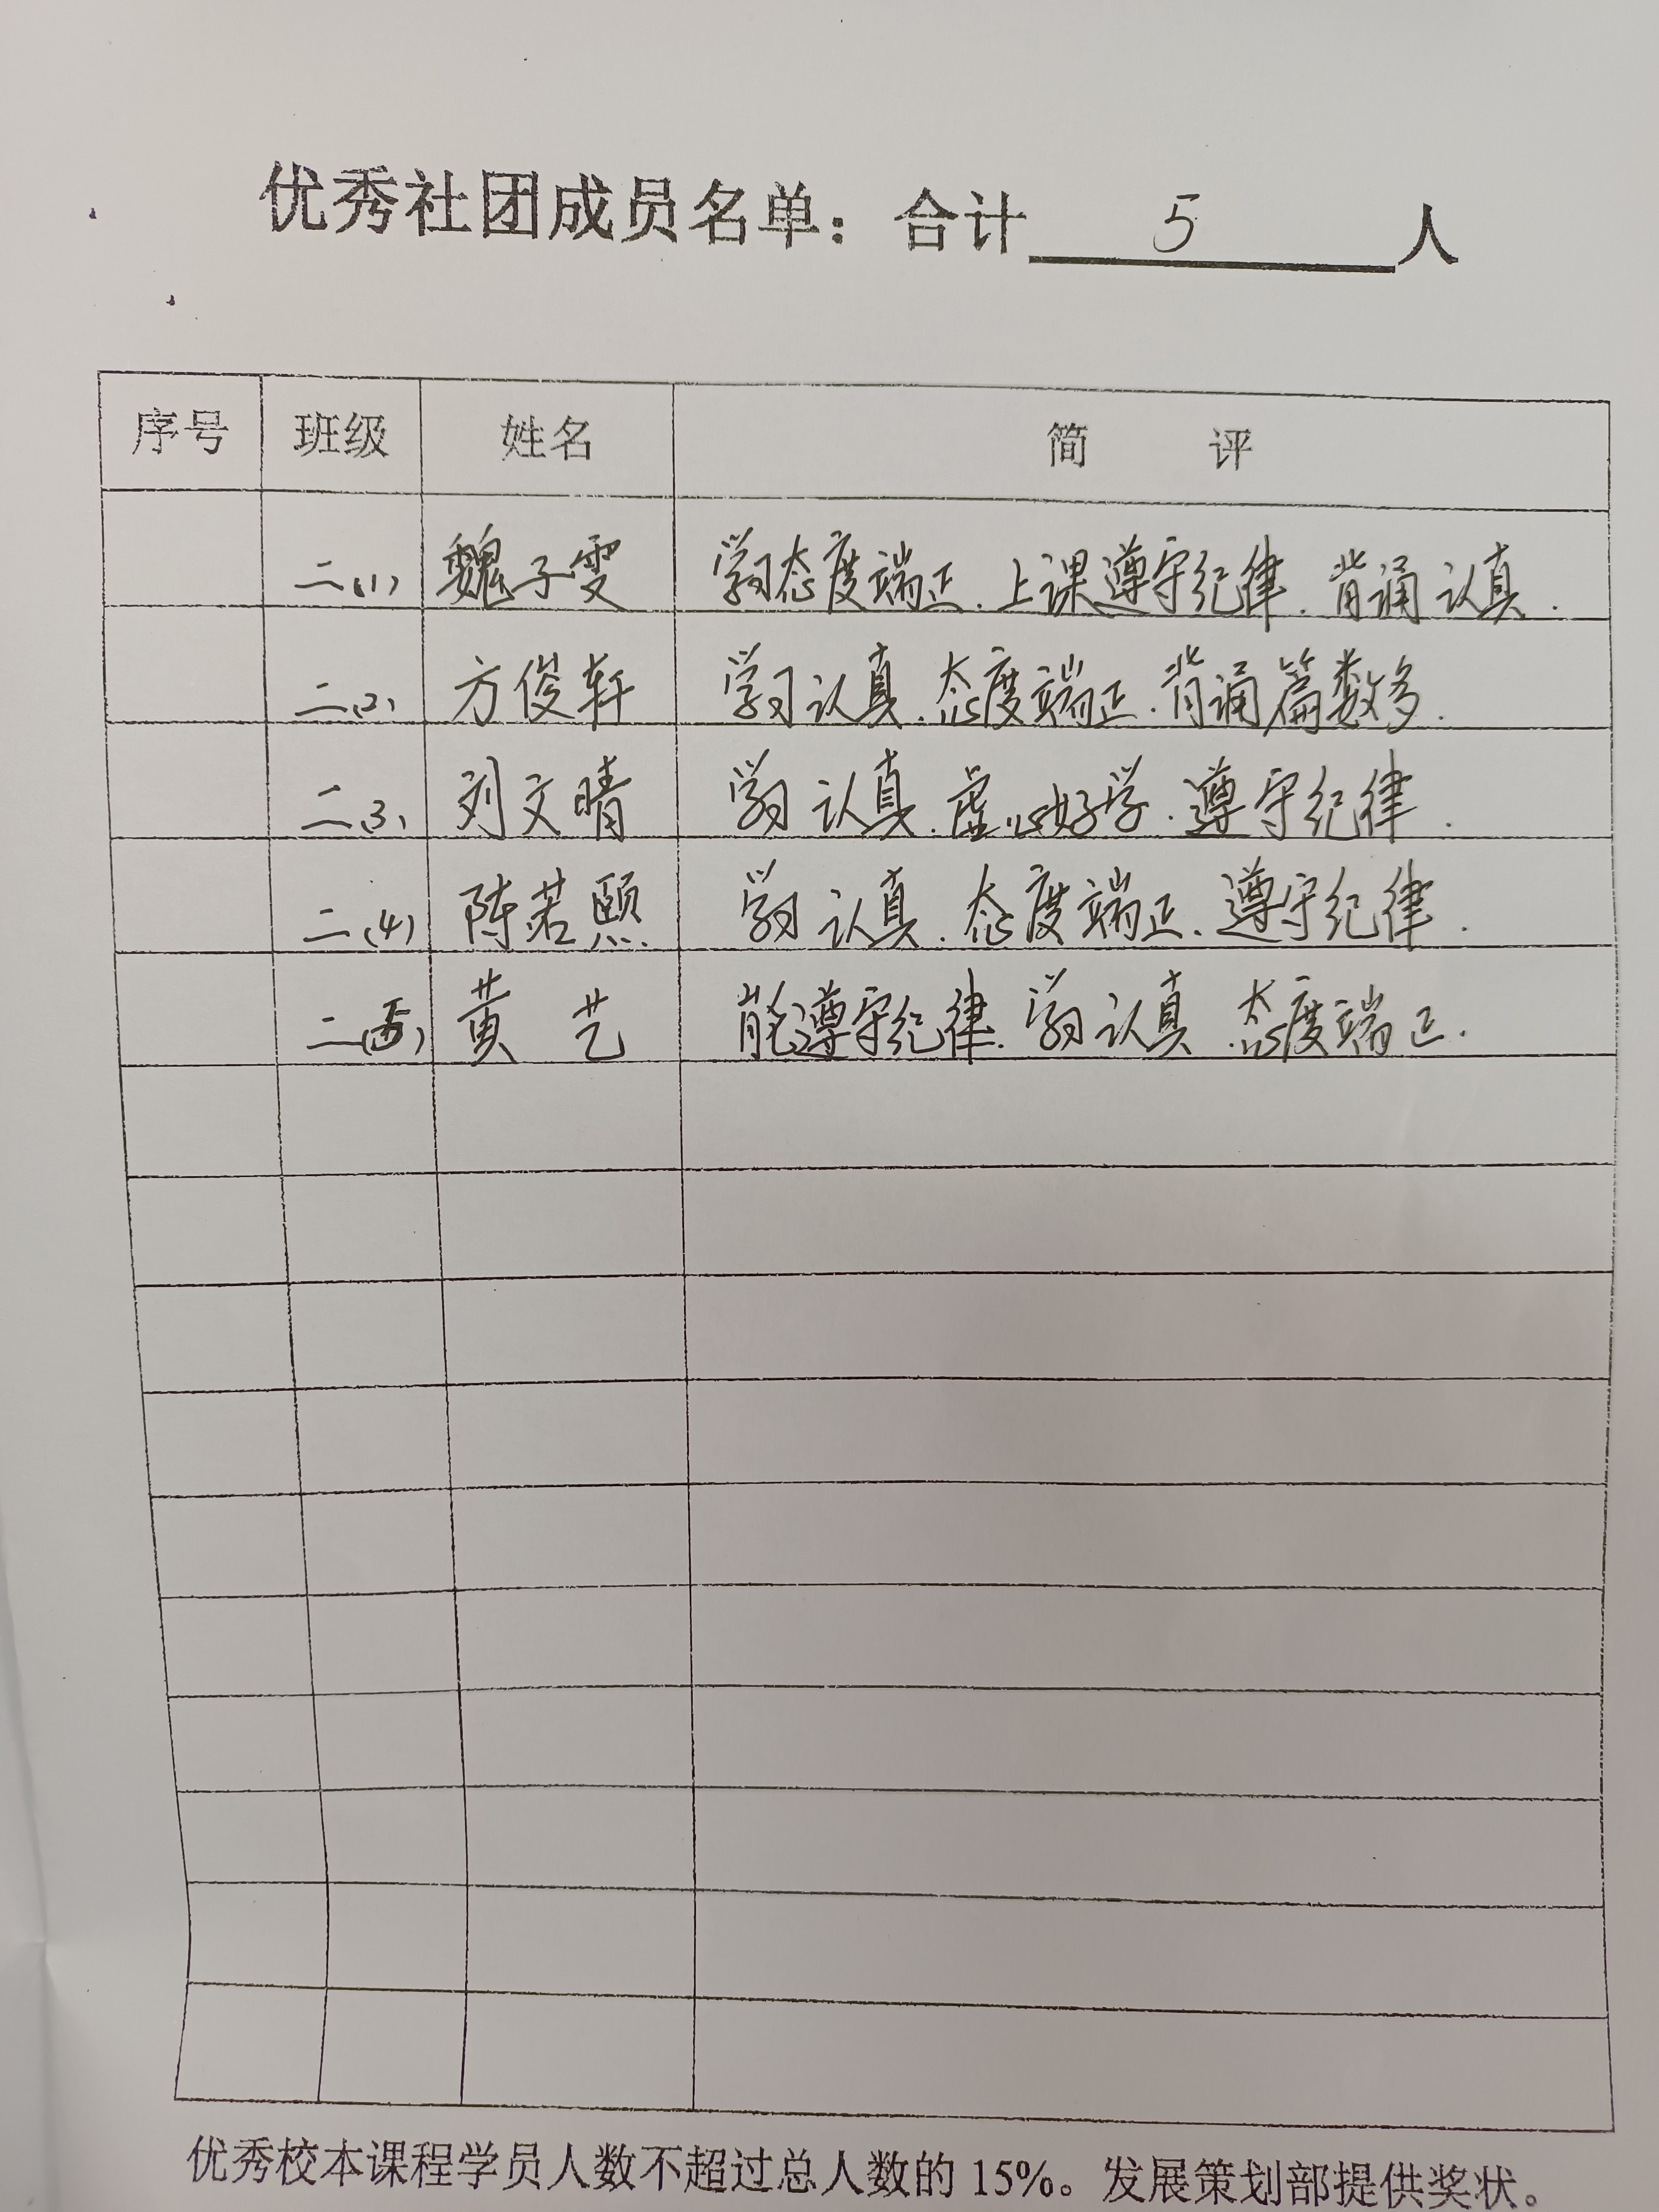 优秀社团成员名单：合计 5 人
序号 班级 姓名 简 评
二(1) 魏子雯 学习态度端正.上课遵守纪律.背诵认真.
二(2) 方俊轩 学习认真.态度端正.背诵篇数多.
二(3) 刘文晴 学习认真.虚心好学.遵守纪律.
二(4) 陈若熙 学习认真.态度端正.遵守纪律.
二(5) 黄艺 能遵守纪律.学习认真.态度端正.
优秀校本课程学员人数不超过总人数的 15%。发展策划部提供奖状。